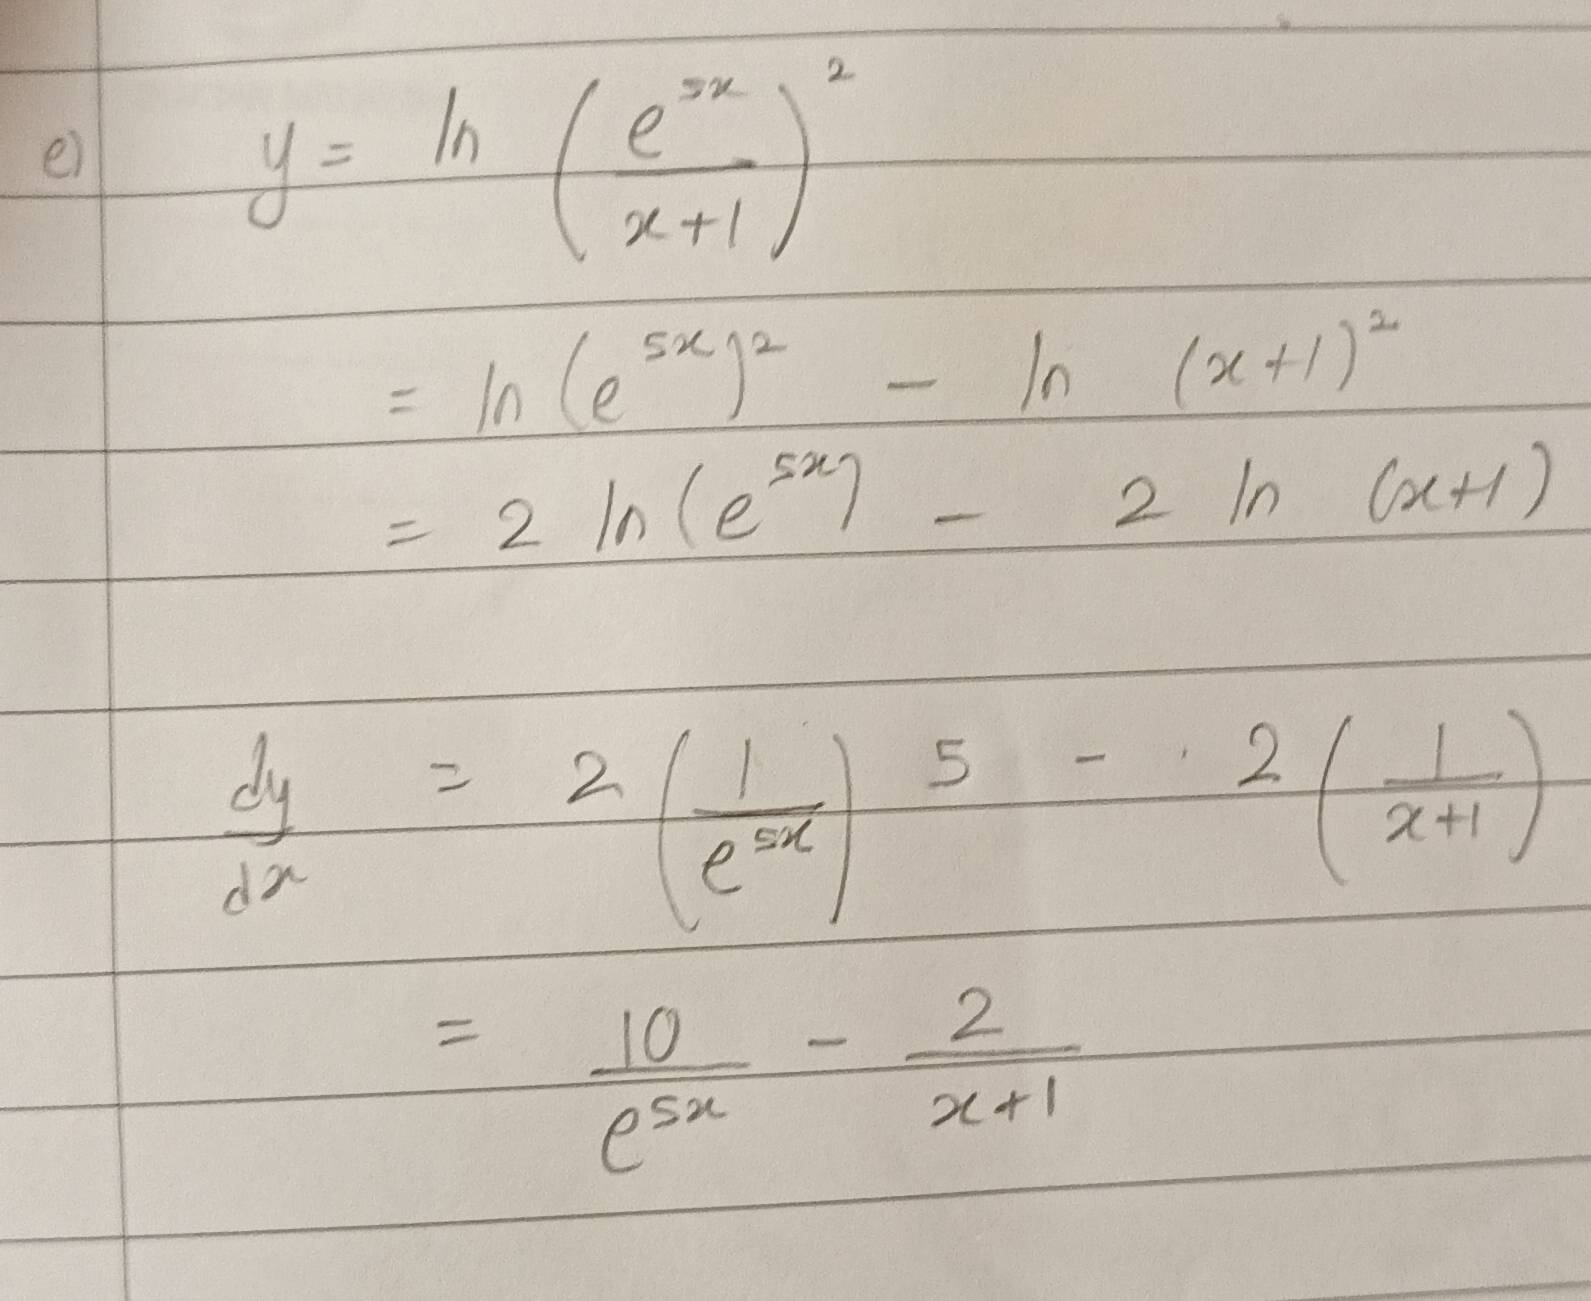 e) y = ln (e^{5x} / (x+1))^2
= ln (e^{5x})^2 - ln (x+1)^2
= 2 ln (e^{5x}) - 2 ln (x+1)
dy/dx = 2 (1/e^{5x}) 5 - 2 (1/(x+1))
= 10/e^{5x} - 2/(x+1)